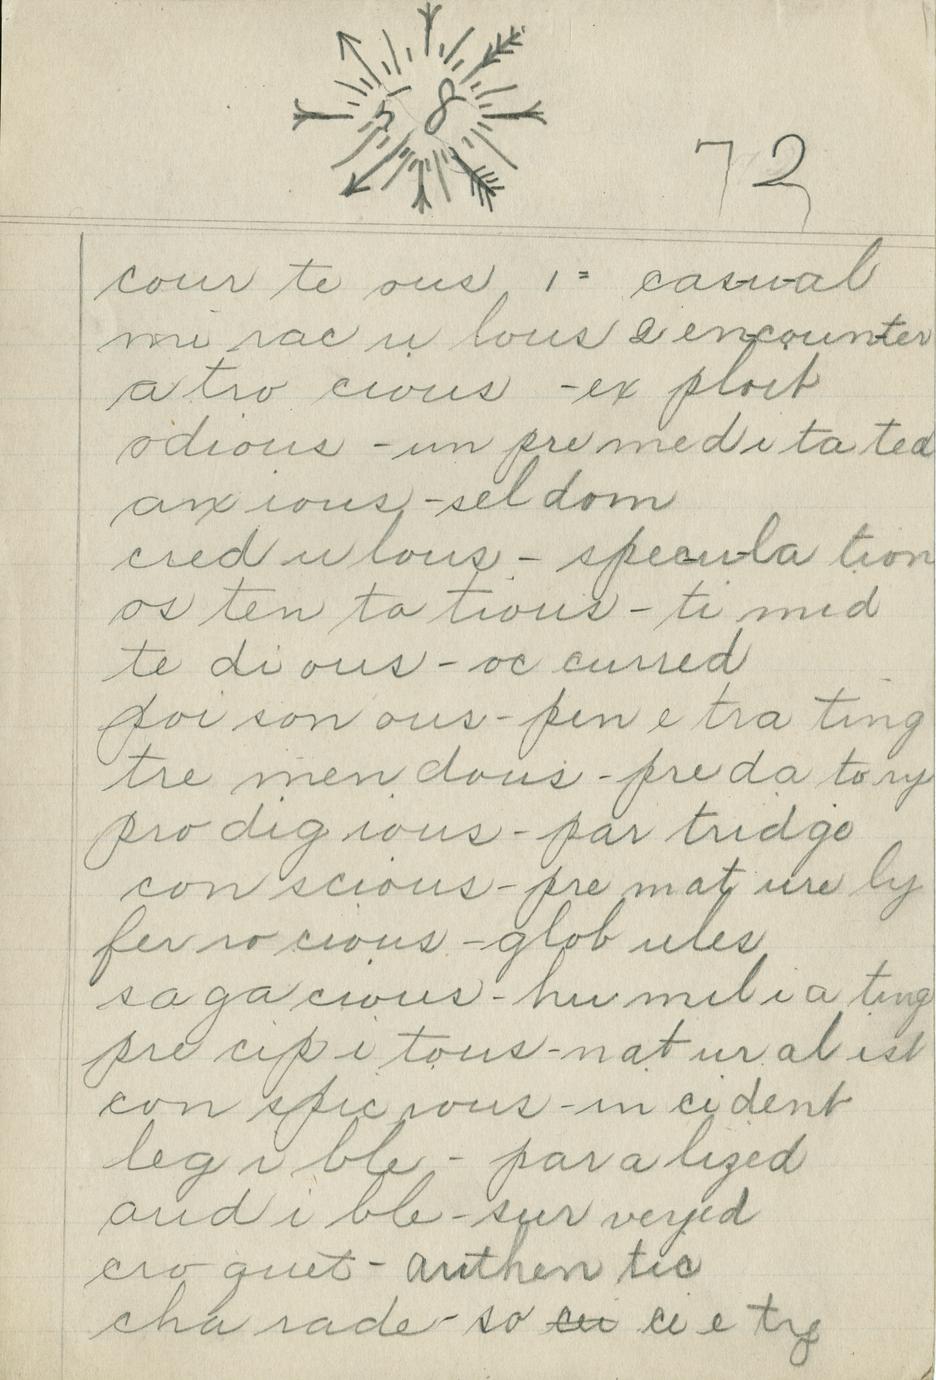 5 8
72
cour te ous 1= casual
mi rac u lous 2 encounter
a tro cious - ex ploit
odious - un pre med i ta ted
anx ious - sel dom
cred u lous - specula tion
os ten ta tious - ti mid
te di ous - oc curred
poi son ous - pen e tra ting
tre men dous - pre da to ry
pro dig ious - par tridge
con scious - pre mat ure ly
fer ro cious - glob ules
sa ga cious - hu mil i a ting
pre cip i tous - nat ur al ist
con spic ious - in ci dent
leg i ble - par a lized
aud i ble - sur veyed
cro quet - authen tic
cha rade - so cii ci e ty